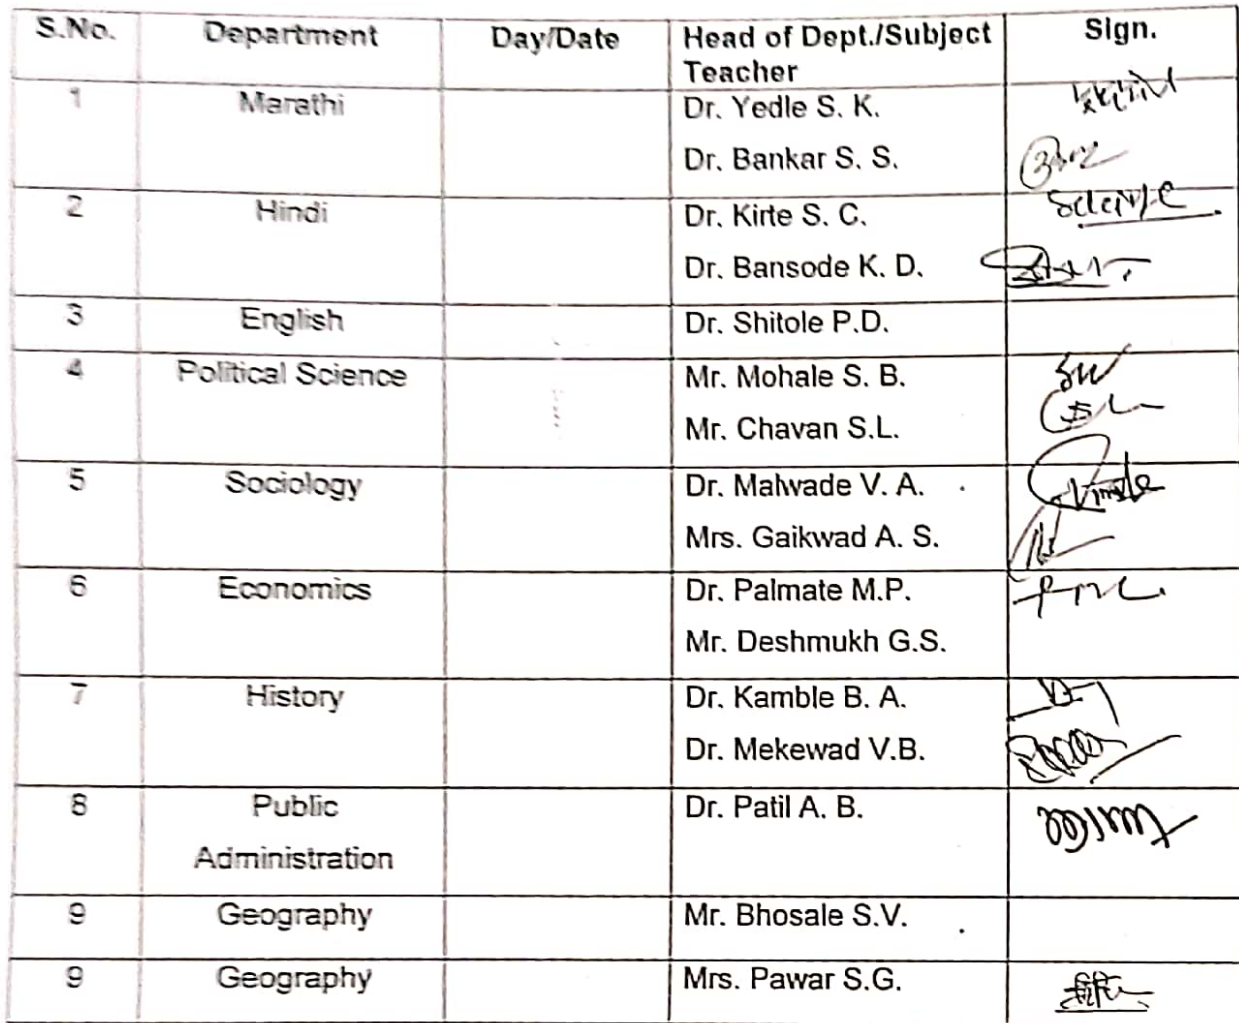 S.No. Department Day/Date Head of Dept./Subject Teacher Sign.
1 Marathi Dr. Yedle S. K.
Dr. Bankar S. S.
2 Hindi Dr. Kirte S. C.
Dr. Bansode K. D.
3 English Dr. Shitole P.D.
4 Political Science Mr. Mohale S. B.
Mr. Chavan S.L.
5 Sociology Dr. Malwade V. A.
Mrs. Gaikwad A. S.
6 Economics Dr. Palmate M.P.
Mr. Deshmukh G.S.
7 History Dr. Kamble B. A.
Dr. Mekewad V.B.
8 Public Dr. Patil A. B.
Administration
9 Geography Mr. Bhosale S.V.
9 Geography Mrs. Pawar S.G.